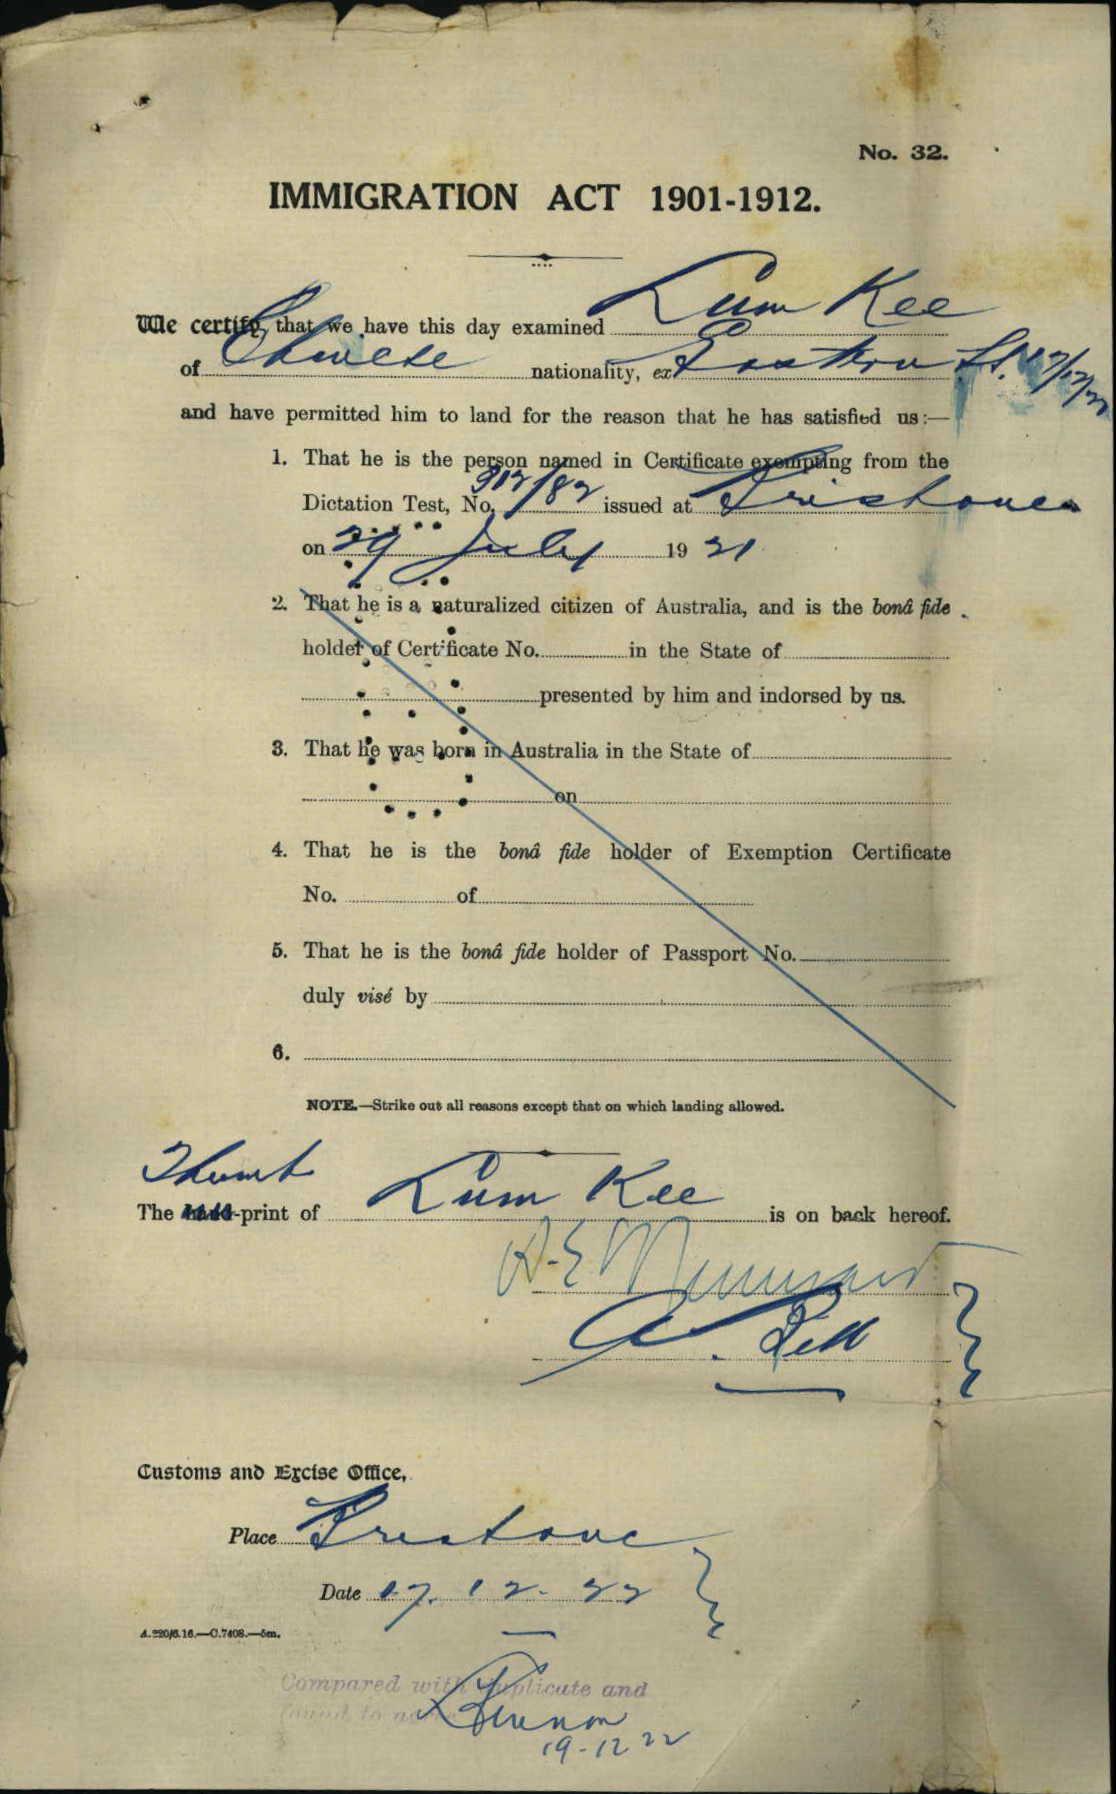 No. 32.
IMMIGRATION ACT 1901-1912.
We certify, that we have this day examined Lum Kee
of Chinese nationality, ex Eastern St. 17/12/22
and have permitted him to land for the reason that he has satisfied us:—
1. That he is the person named in Certificate exempting from the
Dictation Test, No. 312/82 issued at Brisbane
on 29 July 1921
2. That he is a naturalized citizen of Australia, and is the bonâ fide
holder of Certificate No. in the State of
presented by him and indorsed by us.
3. That he was born in Australia in the State of
on
4. That he is the bonâ fide holder of Exemption Certificate
No. of
5. That he is the bonâ fide holder of Passport No.
duly visé by
6.
NOTE.—Strike out all reasons except that on which landing allowed.
Thumb
The hand-print of Lum Kee is on back hereof.
A. Bell
Customs and Excise Office,
Place Brisbane
Date 17. 12. 22
A.220/6.16.—C.7408.—5m.
Compared with duplicate and
found to agree
19-12 22